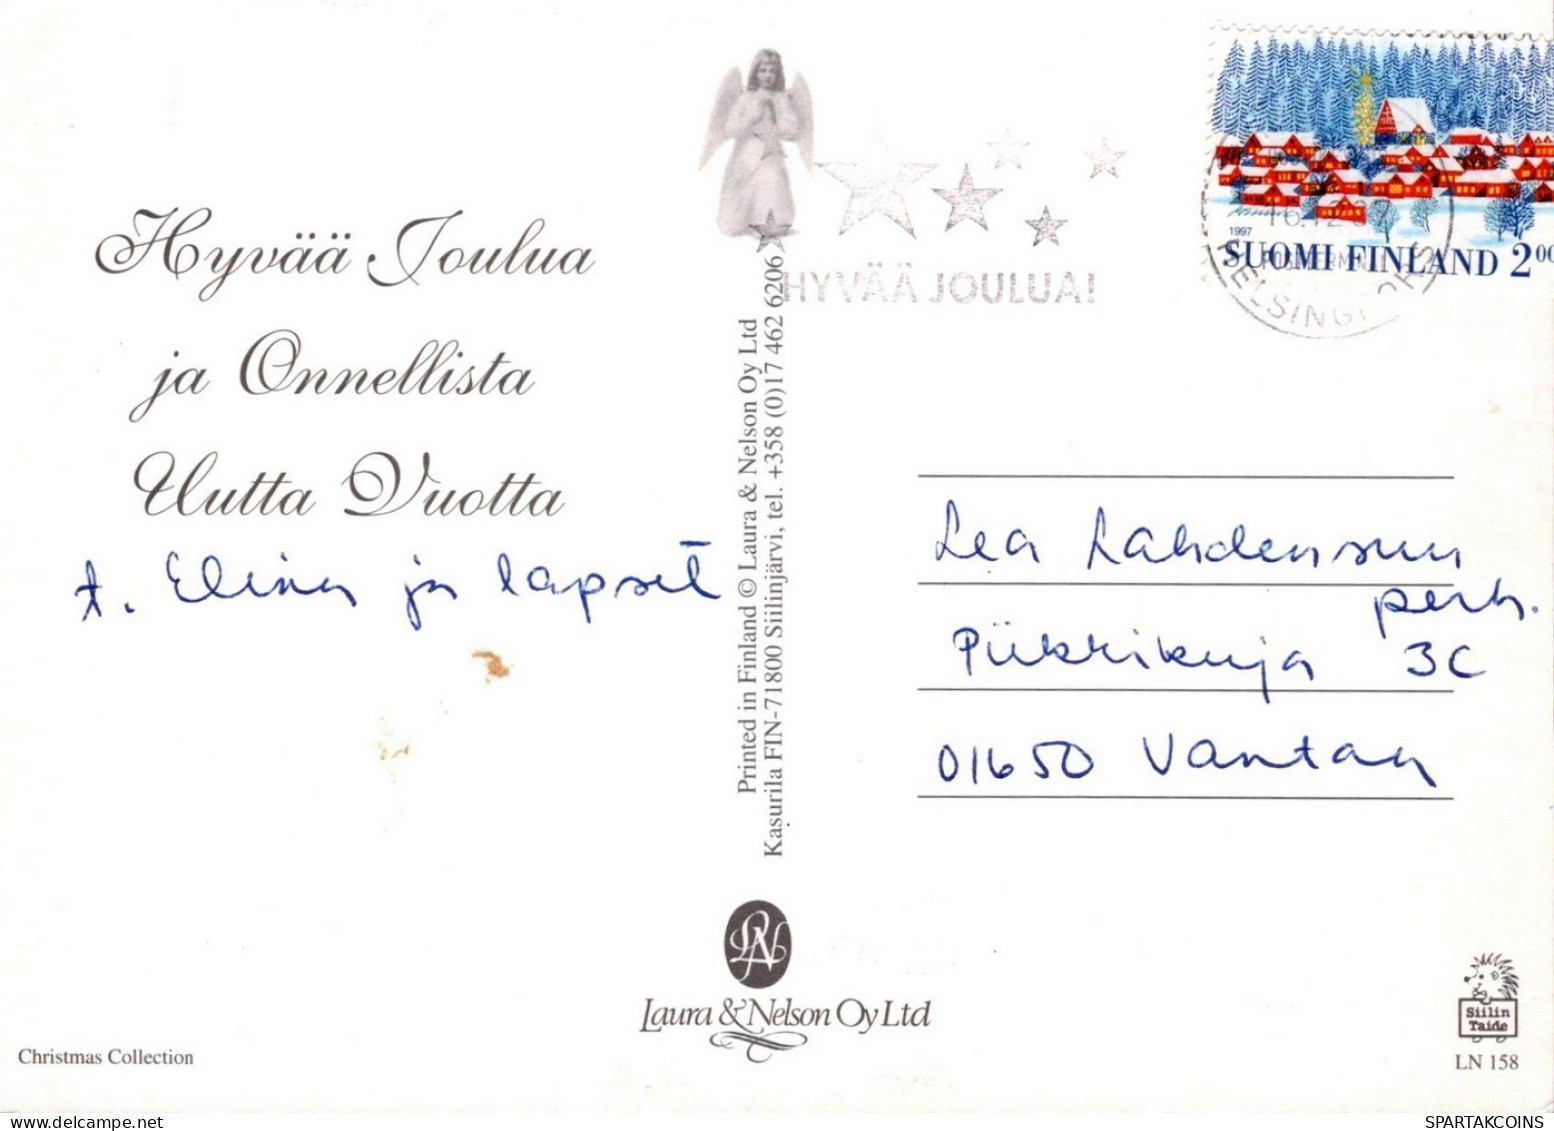 Hyvää Joulua
ja Onnellista
Uutta Vuotta
t. Elina ja lapset
Printed in Finland © Laura & Nelson Oy Ltd
Kasurila FIN-71800 Siilinjärvi, tel. +358 (0)17 462 6206
HYVÄÄ JOULUA!
1997
SUOMI FINLAND 200
Lea Lahdensuun
perh.
Piikkikuja 3C
01650 Vantaa
LN
Laura & Nelson Oy Ltd
Christmas Collection
Siilin
Taide
LN 158
SPARTAKCOINS